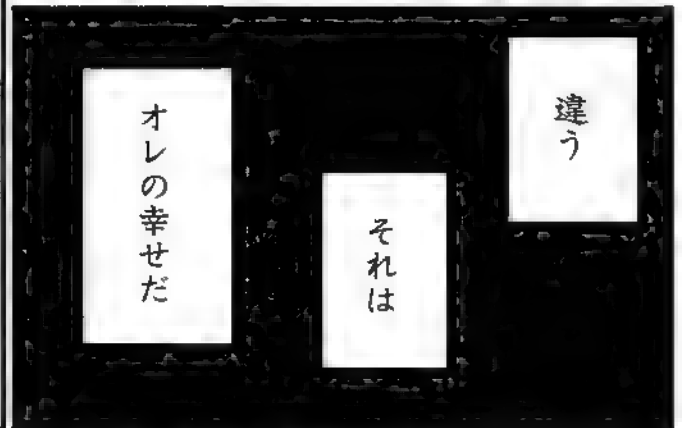 違う
それは
オレの幸せだ